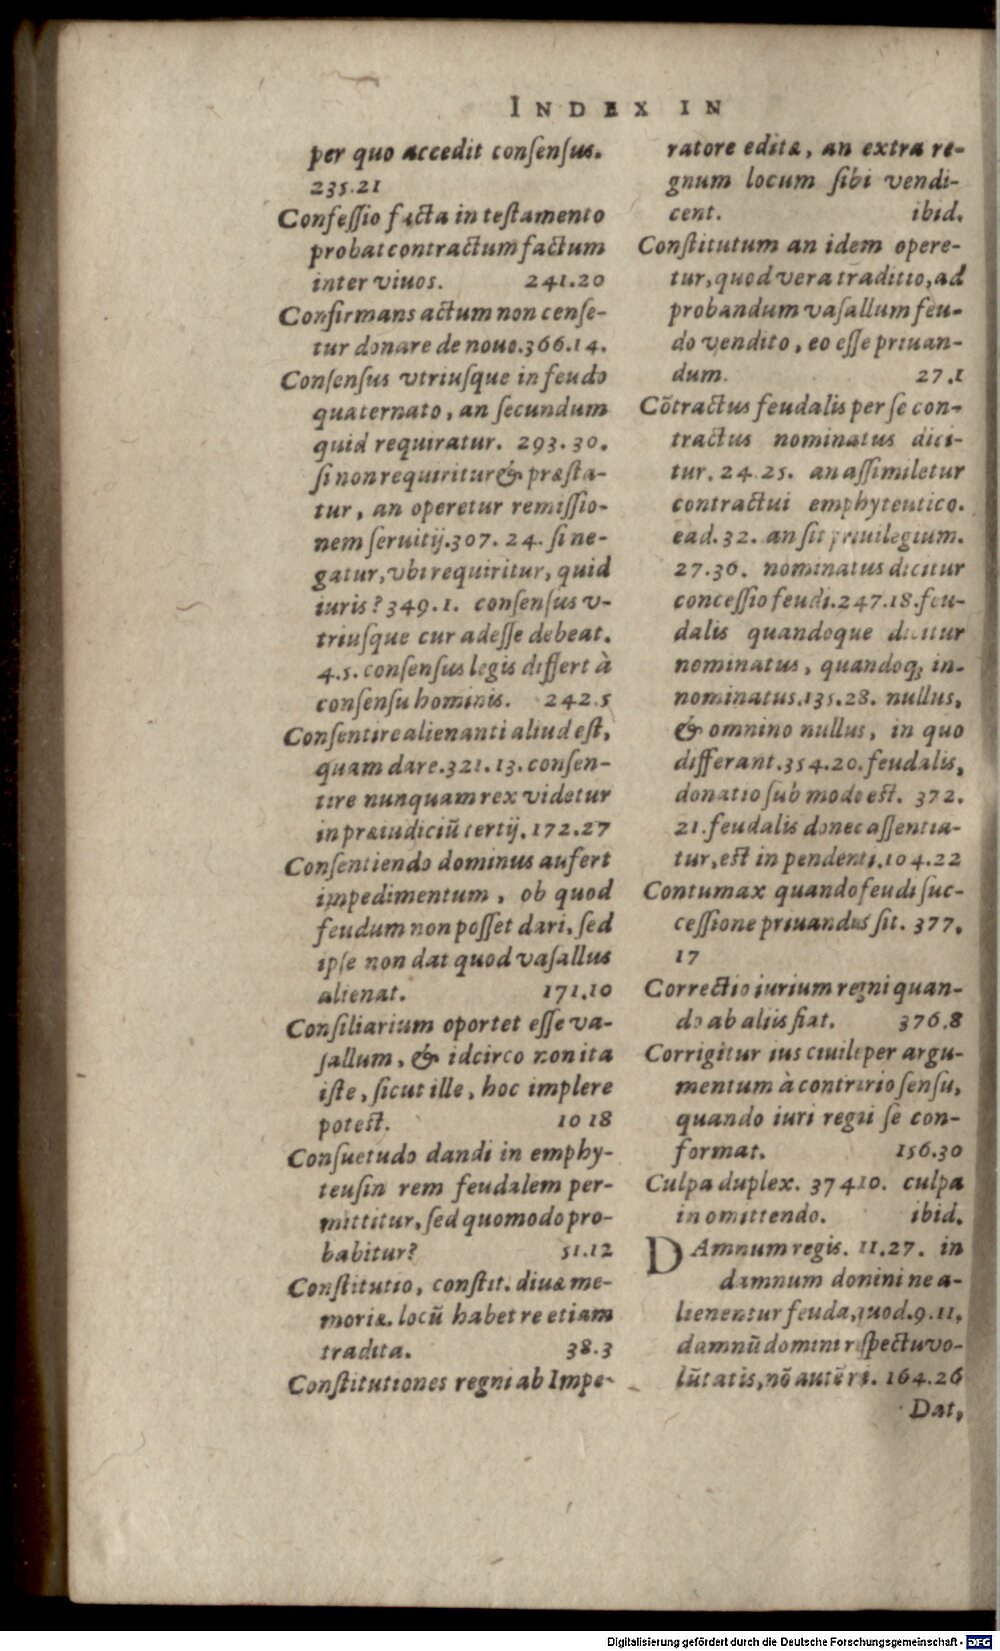 INDEX IN
per quo accedit conſenſus.
235.21
Confeſſio facta in teſtamento
probat contractum factum
inter viuos. 241.20
Confirmans actum non cenſe-
tur donare de nouo.366.14.
Conſenſus vtriuſque in feudo
quaternato, an ſecundum
quid requiratur. 293.30.
ſi non requiritur & præſta-
tur, an operetur remiſſio-
nem ſeruitij.307.24. ſi ne-
gatur, vbi requiritur, quid
iuris? 349.1. conſenſus v-
triuſque cur adeſſe debeat.
4.5. conſenſus legis differt à
conſenſu hominis. 242.5
Conſentire alienanti aliud eſt,
quam dare.321.13. conſen-
tire nunquam rex videtur
in præiudiciũ tertij. 172.27
Conſentiendo dominus aufert
impedimentum, ob quod
feudum non poſſet dari, ſed
ipſe non dat quod vaſallus
alienat. 171.10
Conſiliarium oportet eſſe va-
ſallum, & idcirco non ita
iſte, ſicut ille, hoc implere
poteſt. 10 18
Conſuetudo dandi in emphy-
teuſin rem feudalem per-
mittitur, ſed quomodo pro-
babitur? 51.12
Conſtitutio, conſtit. diuæ me-
moriæ. locũ habet re etiam
tradita. 38.3
Conſtitutiones regni ab Impe-
ratore editæ, an extra re-
gnum locum ſibi vendi-
cent. ibid.
Conſtitutum an idem opere-
tur, quod vera traditio, ad
probandum vaſallum feu-
do vendito, eo eſſe priuan-
dum. 27.1
Cõtractus feudalis per ſe con-
tractus nominatus dici-
tur. 24.25. an aſſimiletur
contractui emphyteutico.
ead. 32. an ſit priuilegium.
27.36. nominatus dicitur
conceſſio feudi.247.18.feu-
dalis quandoque dicitur
nominatus, quandoq; in-
nominatus.135.28. nullus,
& omnino nullus, in quo
differant.354.20.feudalis,
donatio ſub modo eſt. 372.
21.feudalis donec aſſentia-
tur, eſt in pendenti.104.22
Contumax quando feudi ſuc-
ceſſione priuandus ſit. 377.
17
Correctio iurium regni quan-
do ab aliis fiat. 376.8
Corrigitur ius ciuile per argu-
mentum à contrario ſenſu,
quando iuri regii ſe con-
format. 156.30
Culpa duplex. 37410. culpa
in omittendo. ibid.
DAmnum regis. 11.27. in
damnum donini ne a-
lienentur feuda, quod.9.11.
damnũ domini reſpectu vo-
lũtatis, nõ autẽ ri. 164.26
Dat,
Digitalisierung gefördert durch die Deutsche Forschungsgemeinschaft - DFG